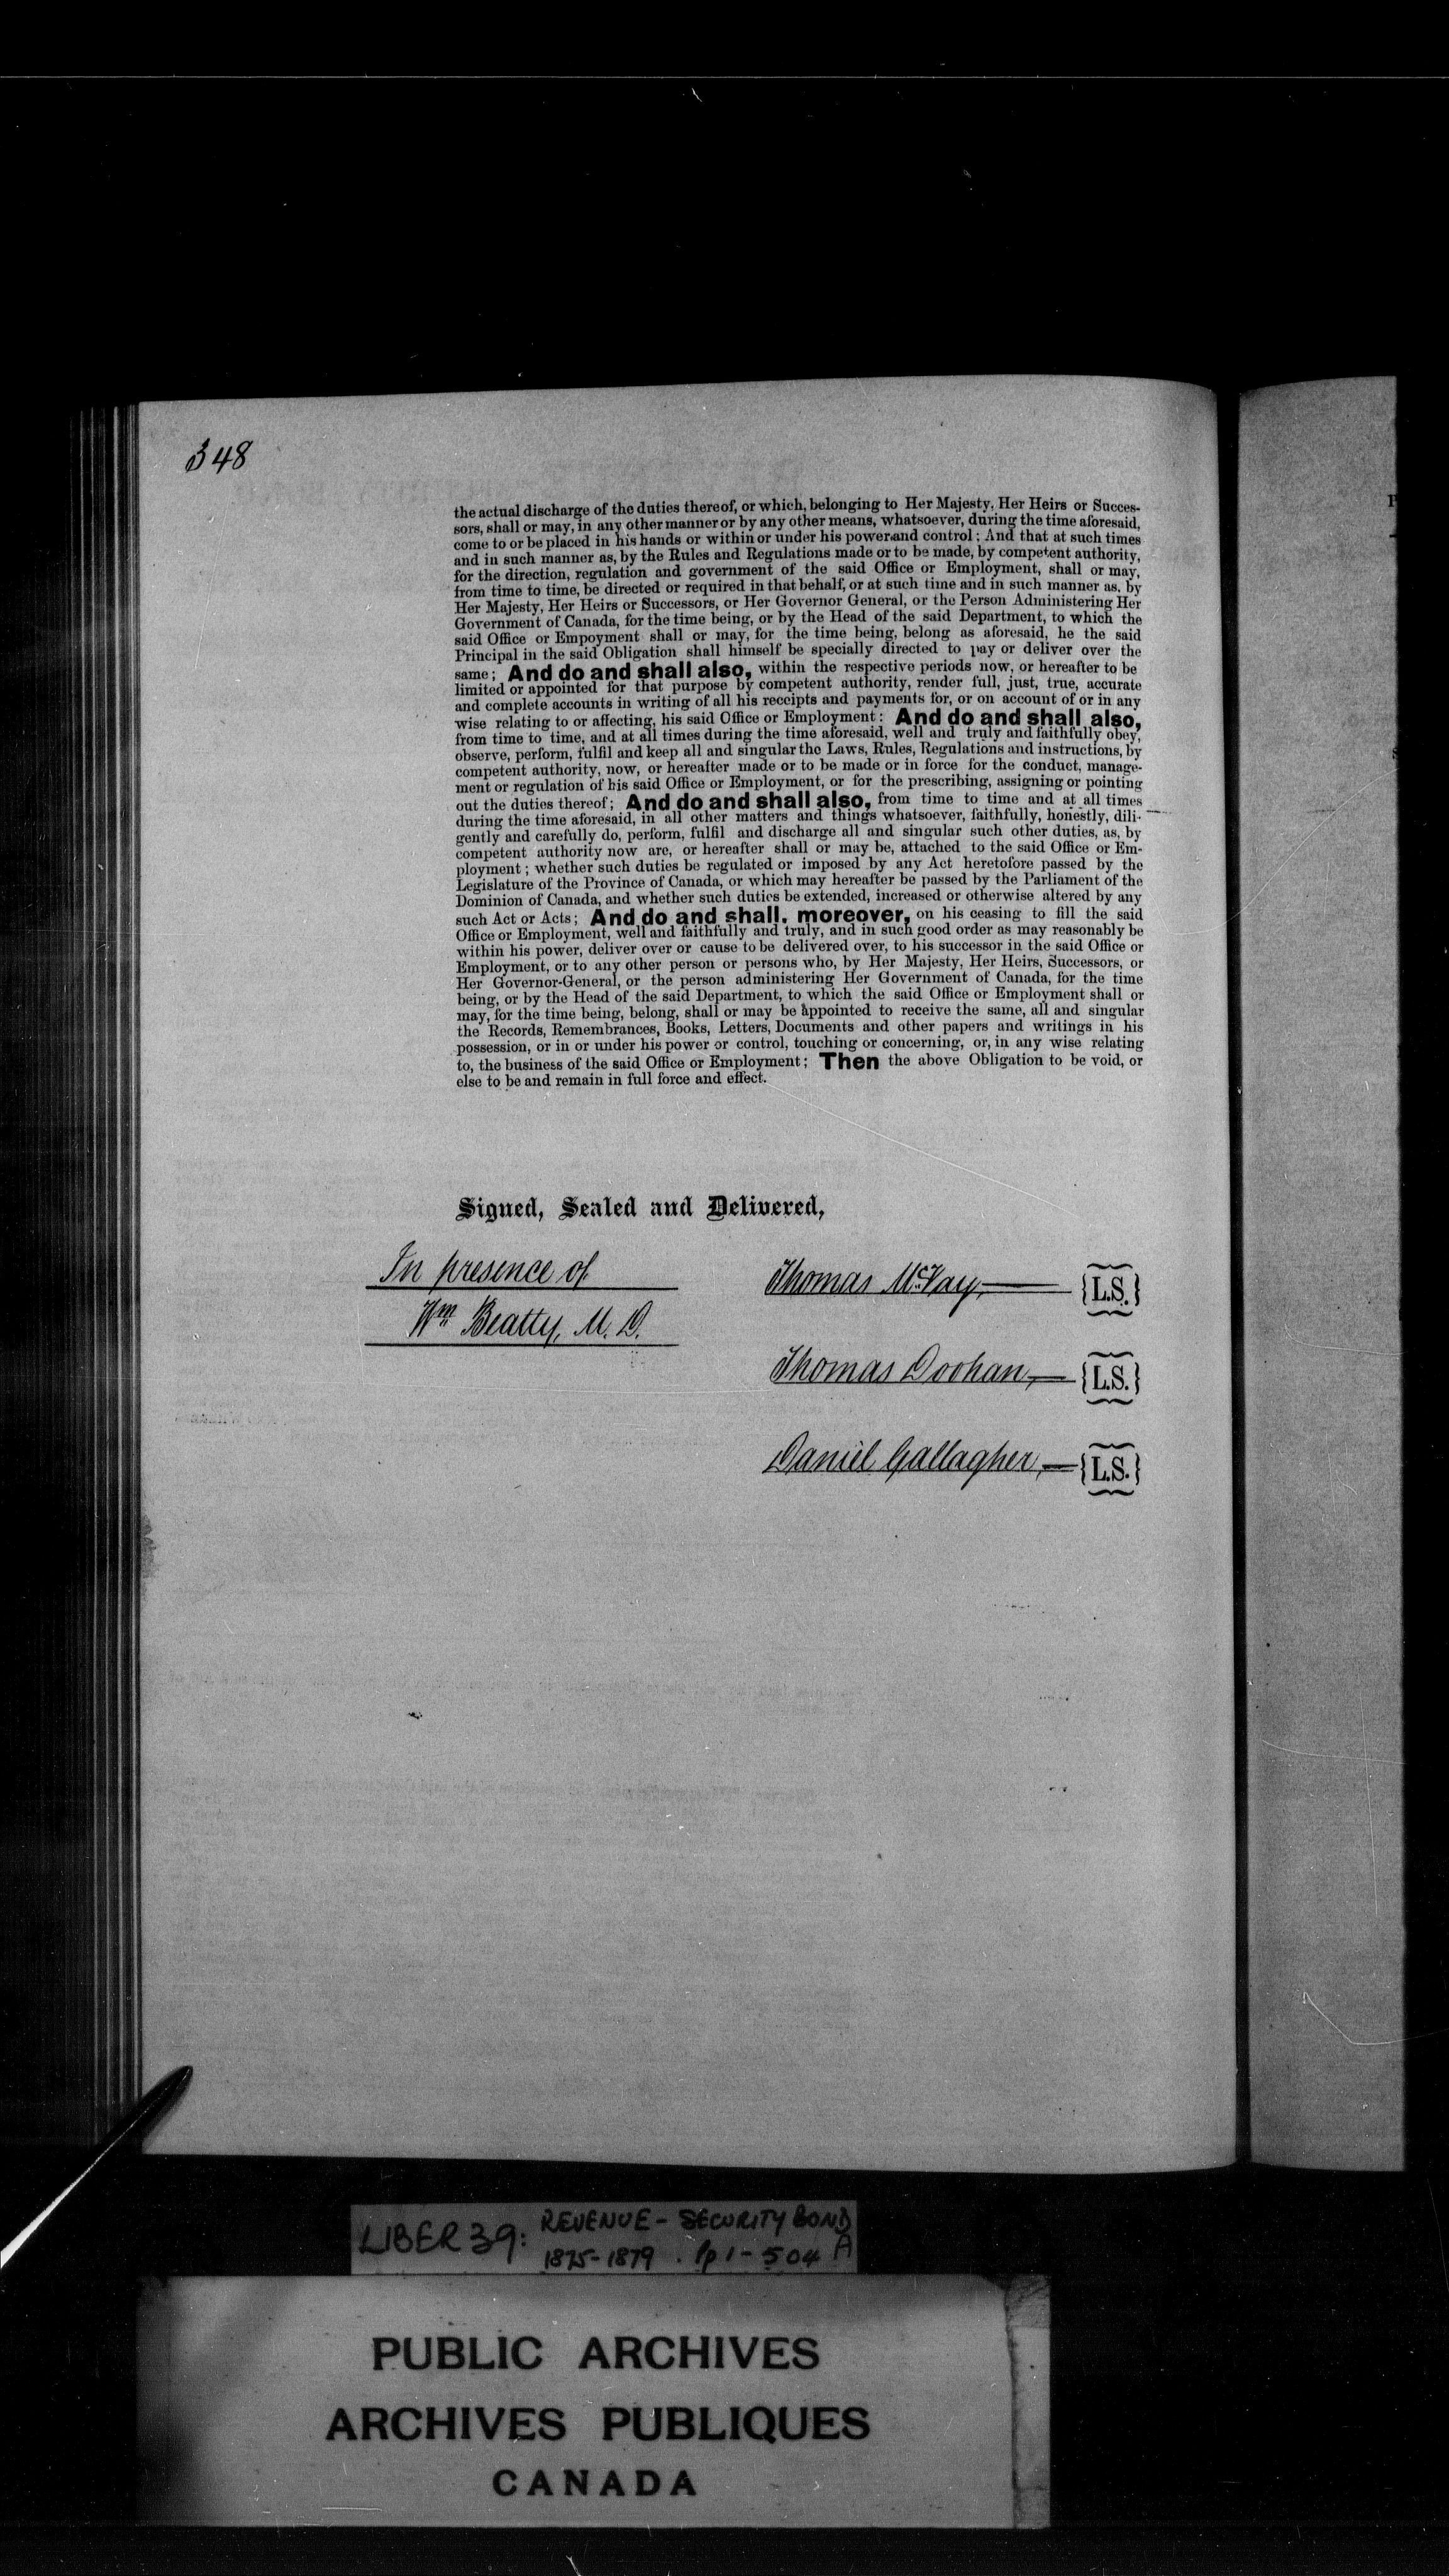 348
the actual discharge of the duties thereof, or which, belonging to Her Majesty, Her Heirs or Succes-
sors, shall or may, in any other manner or by any other means, whatsoever, during the time aforesaid,
come to or be placed in his hands or within or under his power and control; And that at such times
and in such manner as, by the Rules and Regulations made or to be made, by competent authority,
for the direction, regulation and government of the said Office or Employment, shall or may,
from time to time, be directed or required in that behalf, or at such time and in such manner as, by
Her Majesty, Her Heirs or Successors, or Her Governor General, or the Person Administering Her
Government of Canada, for the time being, or by the Head of the said Department, to which the
said Office or Empoyment shall or may, for the time being, belong as aforesaid, he the said
Principal in the said Obligation shall himself be specially directed to pay or deliver over the
same; And do and shall also, within the respective periods now, or hereafter to be
limited or appointed for that purpose by competent authority, render full, just, true, accurate
and complete accounts in writing of all his receipts and payments for, or on account of or in any
wise relating to or affecting, his said Office or Employment: And do and shall also,
from time to time, and at all times during the time aforesaid, well and truly and faithfully obey,
observe, perform, fulfil and keep all and singular the Laws, Rules, Regulations and instructions, by
competent authority, now, or hereafter made or to be made or in force for the conduct, manage-
ment or regulation of his said Office or Employment, or for the prescribing, assigning or pointing
out the duties thereof; And do and shall also, from time to time and at all times
during the time aforesaid, in all other matters and things whatsoever, faithfully, honestly, dili-
gently and carefully do, perform, fulfil and discharge all and singular such other duties, as, by
competent authority now are, or hereafter shall or may be, attached to the said Office or Em-
ployment; whether such duties be regulated or imposed by any Act heretofore passed by the
Legislature of the Province of Canada, or which may hereafter be passed by the Parliament of the
Dominion of Canada, and whether such duties be extended, increased or otherwise altered by any
such Act or Acts; And do and shall, moreover, on his ceasing to fill the said
Office or Employment, well and faithfully and truly, and in such good order as may reasonably be
within his power, deliver over or cause to be delivered over, to his successor in the said Office or
Employment, or to any other person or persons who, by Her Majesty, Her Heirs, Successors, or
Her Governor-General, or the person administering Her Government of Canada, for the time
being, or by the Head of the said Department, to which the said Office or Employment shall or
may, for the time being, belong, shall or may be appointed to receive the same, all and singular
the Records, Remembrances, Books, Letters, Documents and other papers and writings in his
possession, or in or under his power or control, touching or concerning, or, in any wise relating
to, the business of the said Office or Employment; Then the above Obligation to be void, or
else to be and remain in full force and effect.
Signed, Sealed and Delivered,
In presence of
Wm Beatty, M. D.
Thomas McVay, {L.S.}
Thomas Doohan, {L.S.}
Daniel Gallagher, {L.S.}
LIBER 39: REVENUE - SECURITY BOND
1875-1879 . Pp 1 - 504 A
PUBLIC ARCHIVES
ARCHIVES PUBLIQUES
CANADA